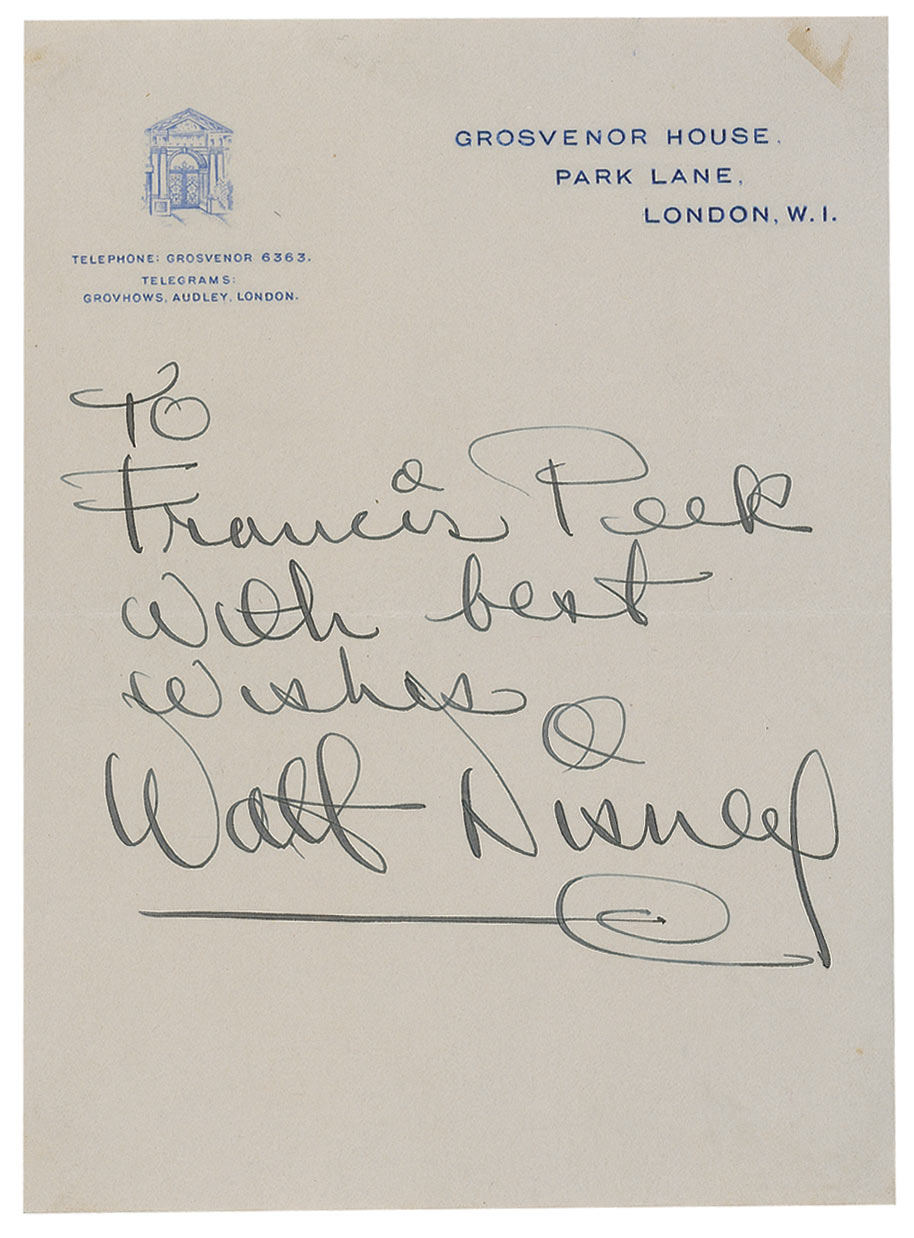 GROSVENOR HOUSE,
PARK LANE,
LONDON, W.1.
TELEPHONE: GROSVENOR 6363.
TELEGRAMS:
GROVHOWS, AUDLEY, LONDON.
To
Francis Peek
with best
wishes
Walt Disney